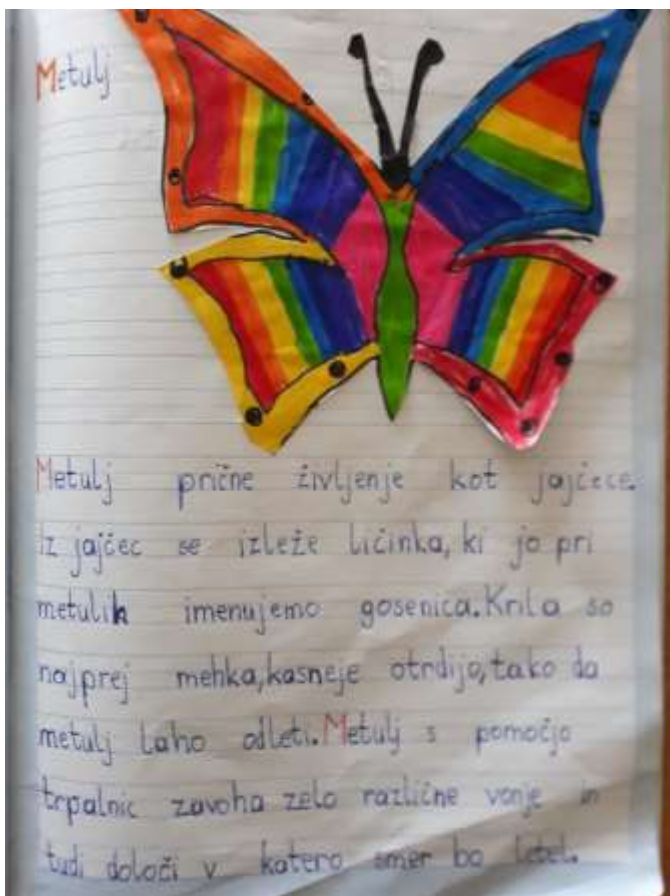 Metulj
Metulj prične življenje kot jajčece.
Iz jajčec se izleže ličinka, ki jo pri
metulih imenujemo gosenica. Krila so
najprej mehka, kasneje otrdijo, tako da
metulj laho odleti. Metulj s pomočjo
trpalnic zavoha zelo različne vonje in
tudi določi v katero smer bo letel.